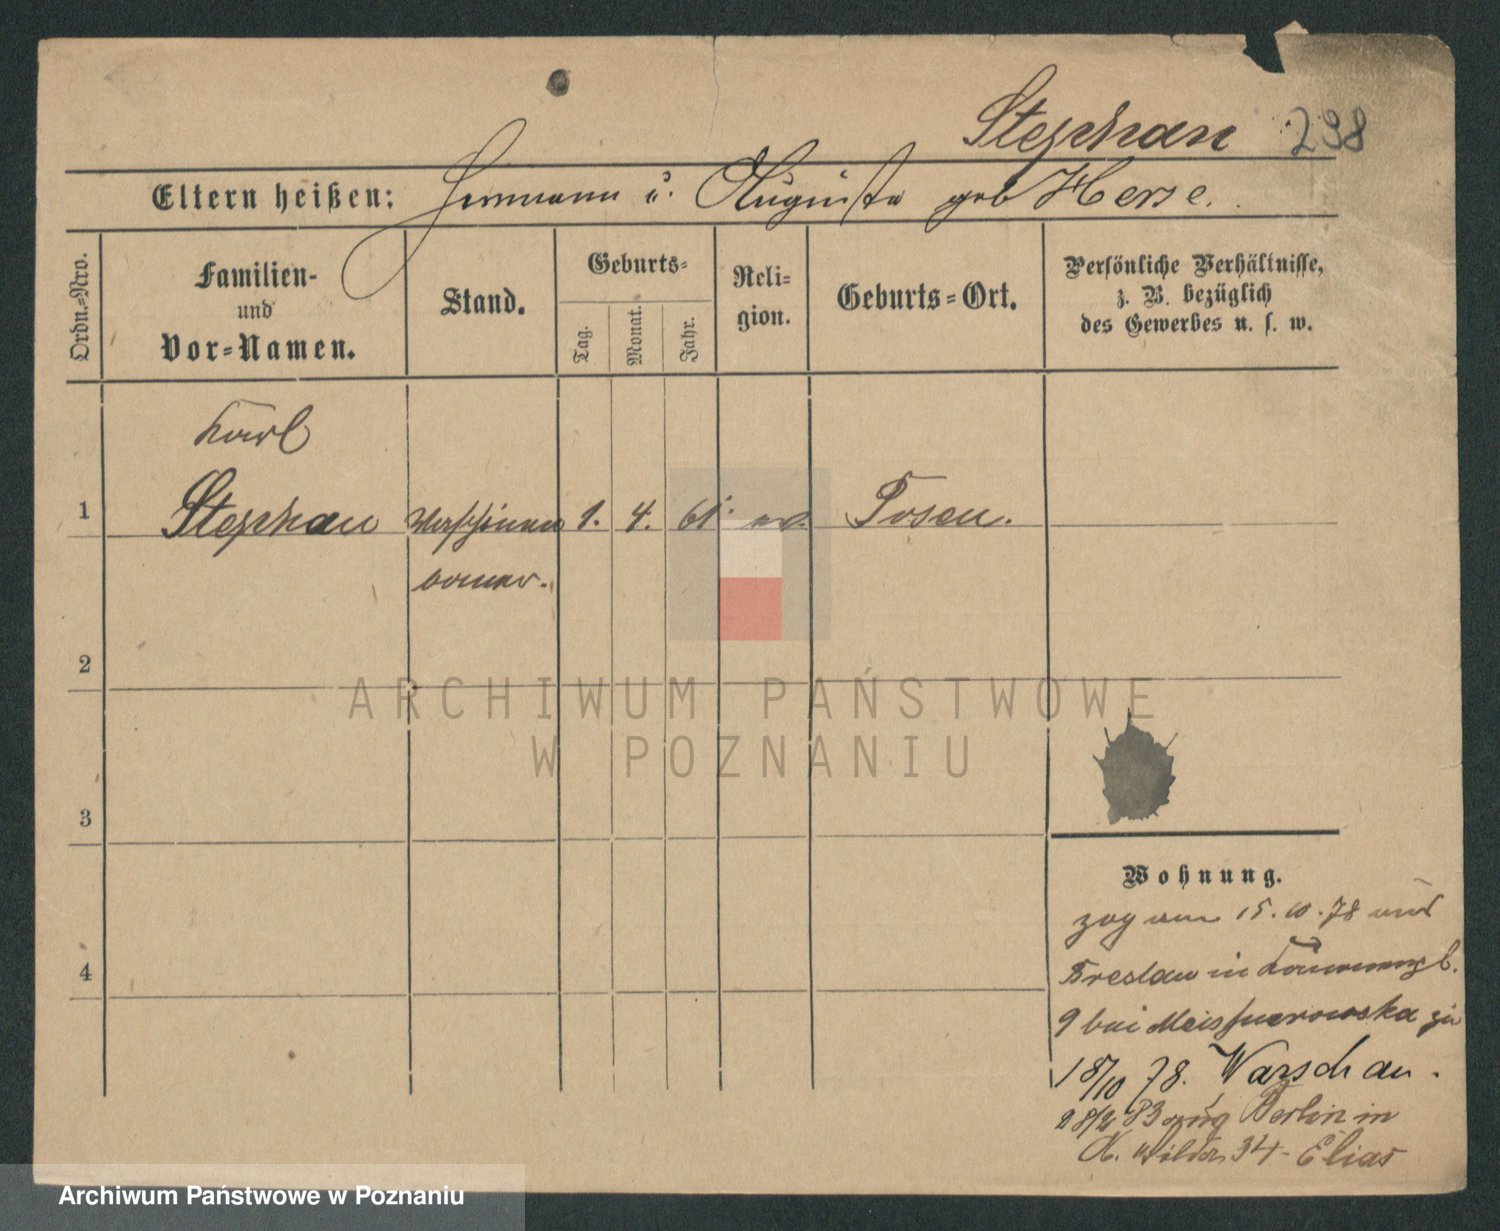 Stephan 298
Eltern heißen: Hermann u. Auguste geb Herse.
Ordn.-Nro.
Familien-
und
Vor-Namen.
Stand.
Geburts-
Tag.
Monat.
Jahr.
Reli-
gion.
Geburts-Ort.
Persönliche Verhältnisse,
z. B. bezüglich
des Gewerbes u. s. w.
Karl
1 Stephan Maschinen 1. 4. 61. ev. Posen.
bauer.
2
3
4
ARCHIWUM PAŃSTWOWE
W POZNANIU
Wohnung.
zog am 15.10.78 aus
Breslau in
9 bei zu
18/10 78. Warschau.
83 Berlin in
34 Elias
Archiwum Państwowe w Poznaniu